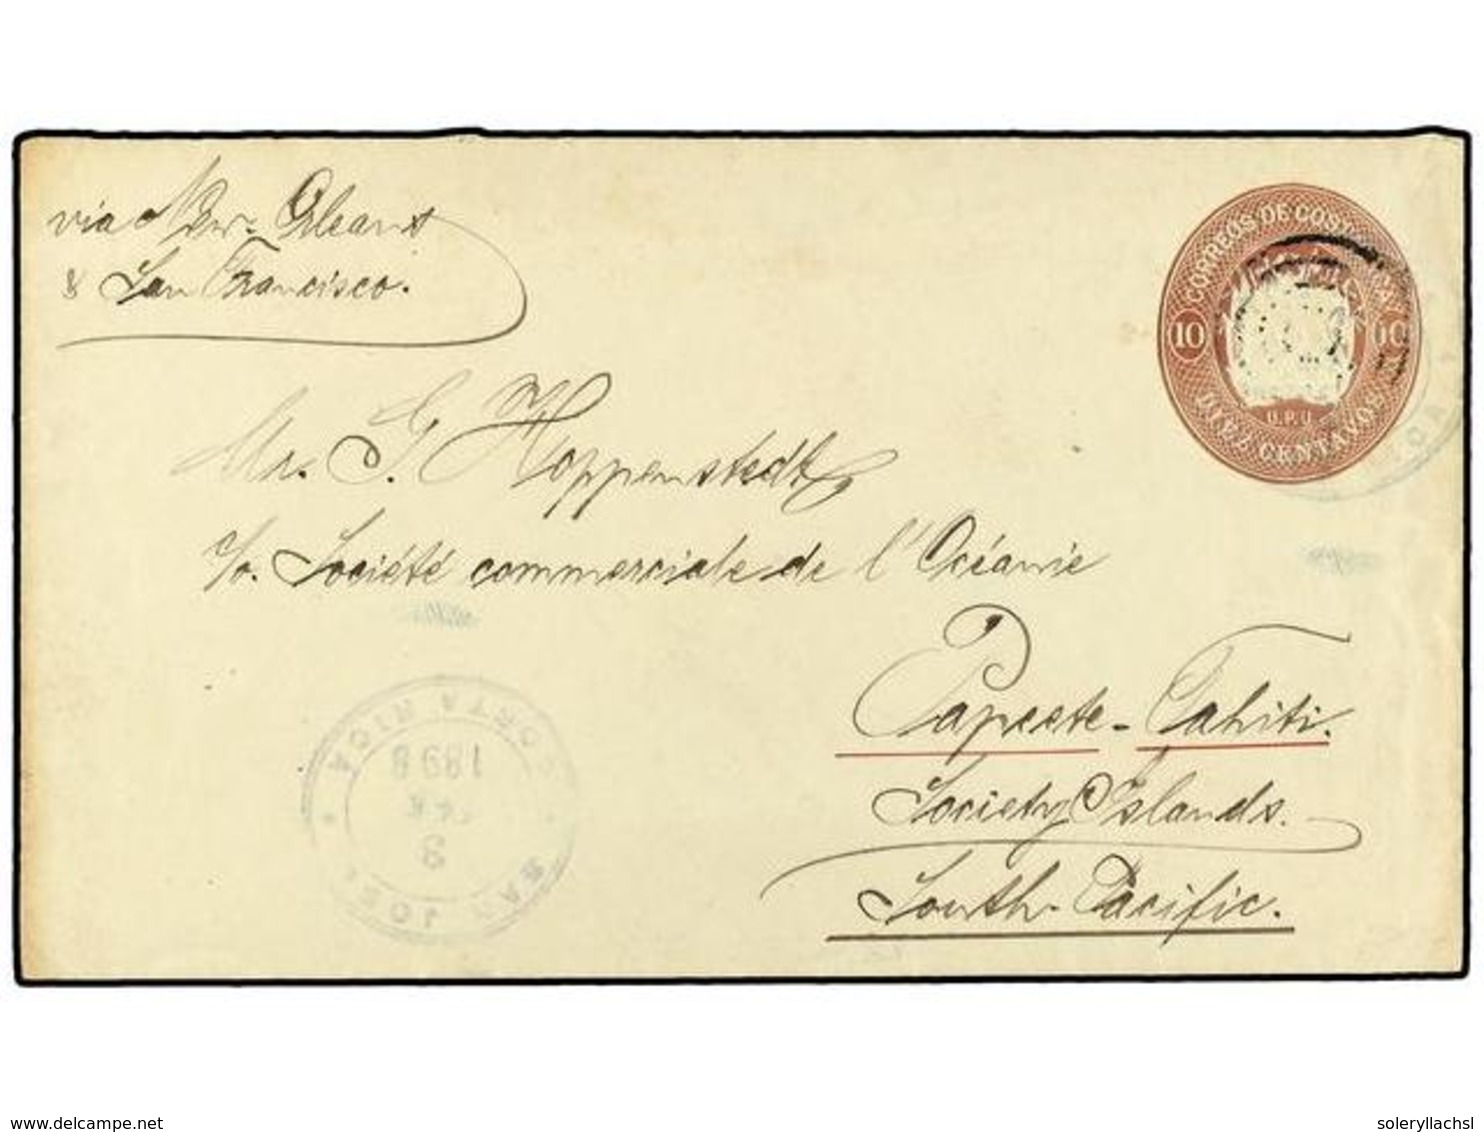 via New-Orleans
& San Francisco.
CORREOS DE COSTA RICA
10 10
U.P.U.
DIEZ CENTAVOS
Mr. G. Hoppenstedt
c/o. Société commerciale de l'Océanie
Papeete-Tahiti.
Society Islands.
South-Pacific.
COSTA RICA
1898
3
SAN JOSE
delcampe.net
soleryllachsl